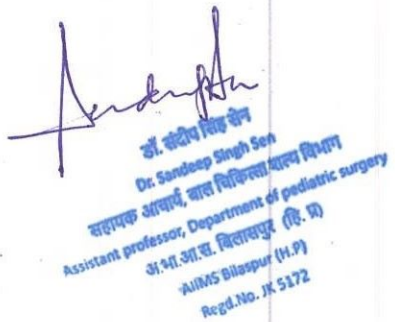 डॉ. संदीप सिंह सेन
Dr. Sandeep Singh Sen
सहायक आचार्य, बाल चिकित्सा शल्य विभाग
Assistant professor, Department of pediatric surgery
अ.भा.आ.स. बिलासपुर (हि. प्र)
AIIMS Bilaspur (H.P)
Regd.No. JK 5172